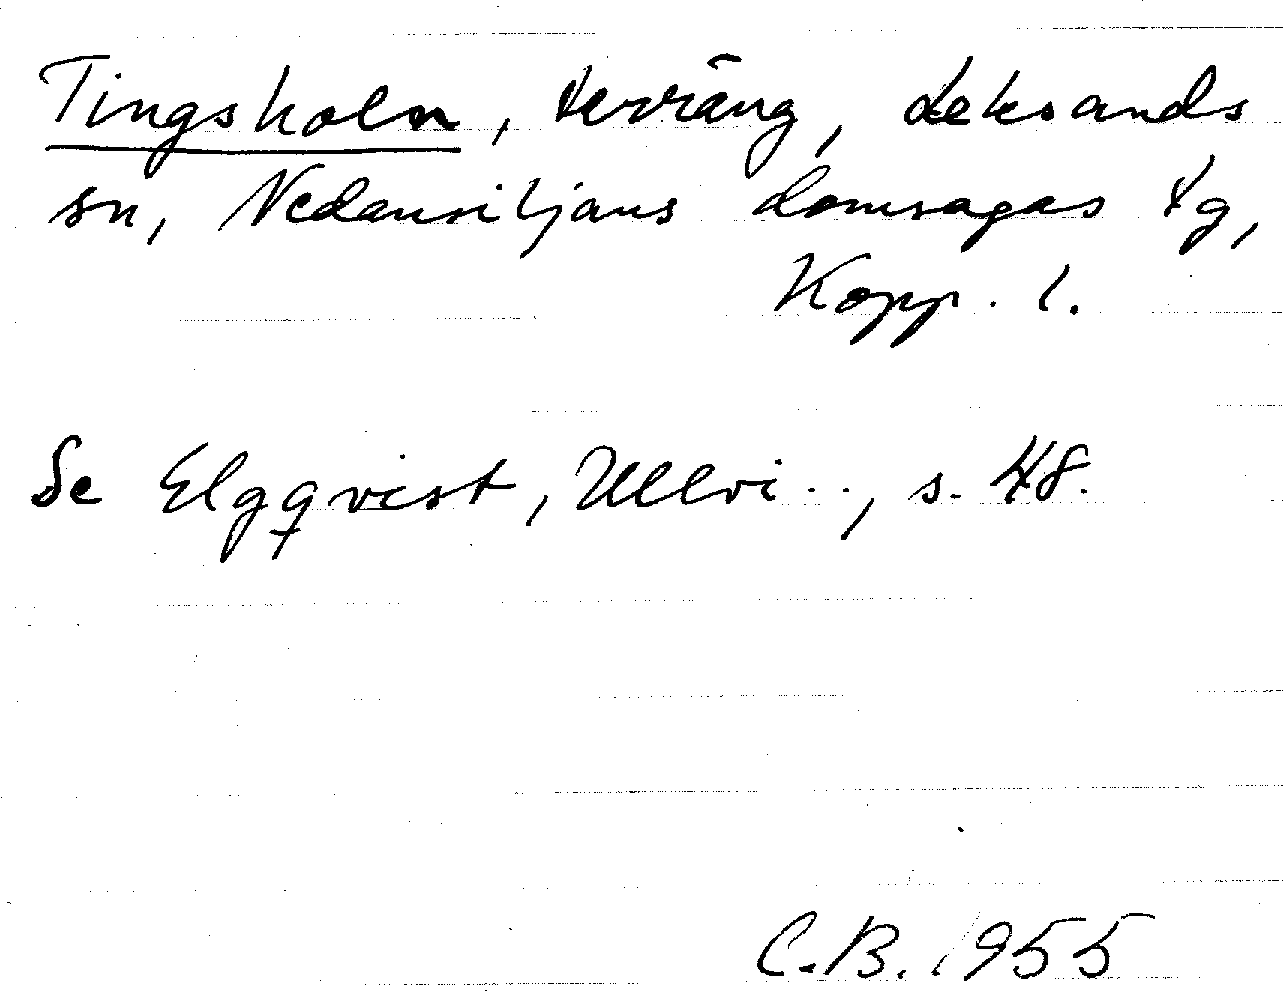 Tingsholn, terräng, Leksands
sn, Nedansiljans domsagas tg,
Kopp. l.
Se Elgqvist, Ullvi.., s. 48.
C.B. 1955